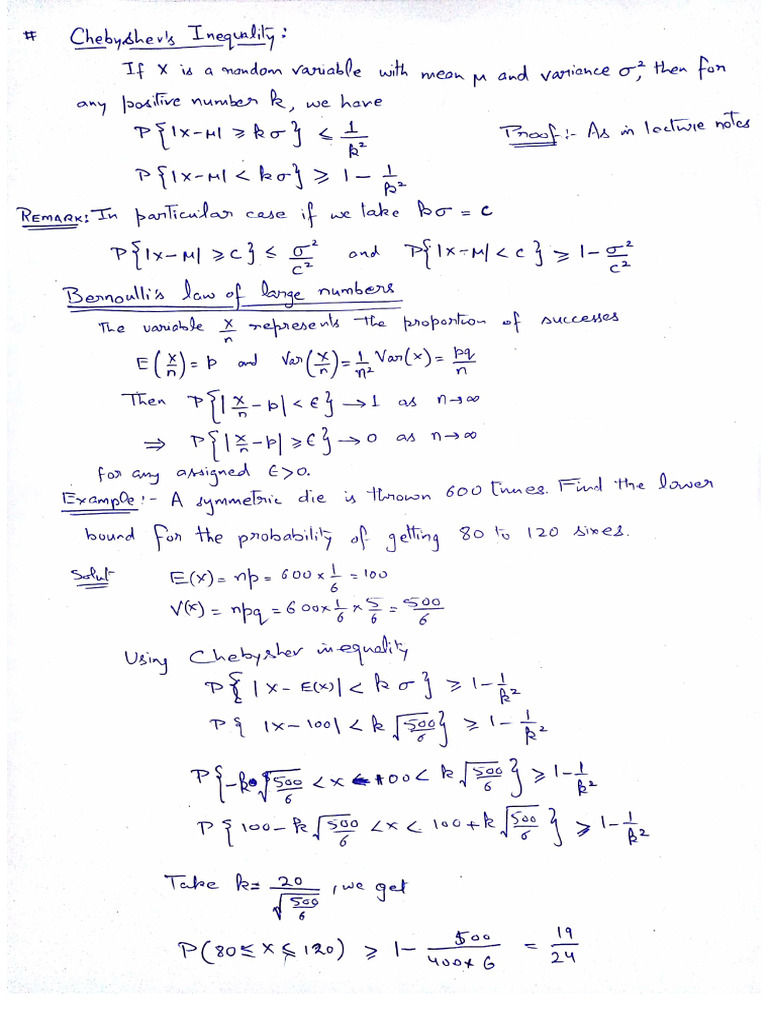 # Chebyshev's Inequality:
If X is a random variable with mean μ and variance σ², then for
any positive number k, we have
P{|X-μ| ≥ kσ} ≤ 1/k²
Proof:- As in lecture notes
P{|X-μ| < kσ} ≥ 1 - 1/k²
REMARK: In particular case if we take kσ = c
P{|X-μ| ≥ c} ≤ σ²/c² and P{|X-μ| < c} ≥ 1 - σ²/c²
Bernoulli's law of large numbers
The variable X/n represents the proportion of successes
E(X/n) = p and Var(X/n) = 1/n² Var(X) = pq/n
Then P{|X/n - p| < ϵ} → 1 as n→∞
⇒ P{|X/n - p| ≥ ϵ} → 0 as n→∞
for any assigned ϵ>0.
Example:- A symmetric die is thrown 600 times. Find the lower
bound for the probability of getting 80 to 120 sixes.
Solut E(X) = np = 600 × 1/6 = 100
V(X) = npq = 600 × 1/6 × 5/6 = 500/6
Using Chebyshev inequality
P{|X - E(X)| < kσ} ≥ 1 - 1/k²
P{|X-100| < k√(500/6)} ≥ 1 - 1/k²
P{-k√(500/6) < X - 100 < k√(500/6)} ≥ 1 - 1/k²
P{100 - k√(500/6) < X < 100 + k√(500/6)} ≥ 1 - 1/k²
Take k = 20/√(500/6), we get
P(80 ≤ X ≤ 120) ≥ 1 - 500/(400×6) = 19/24